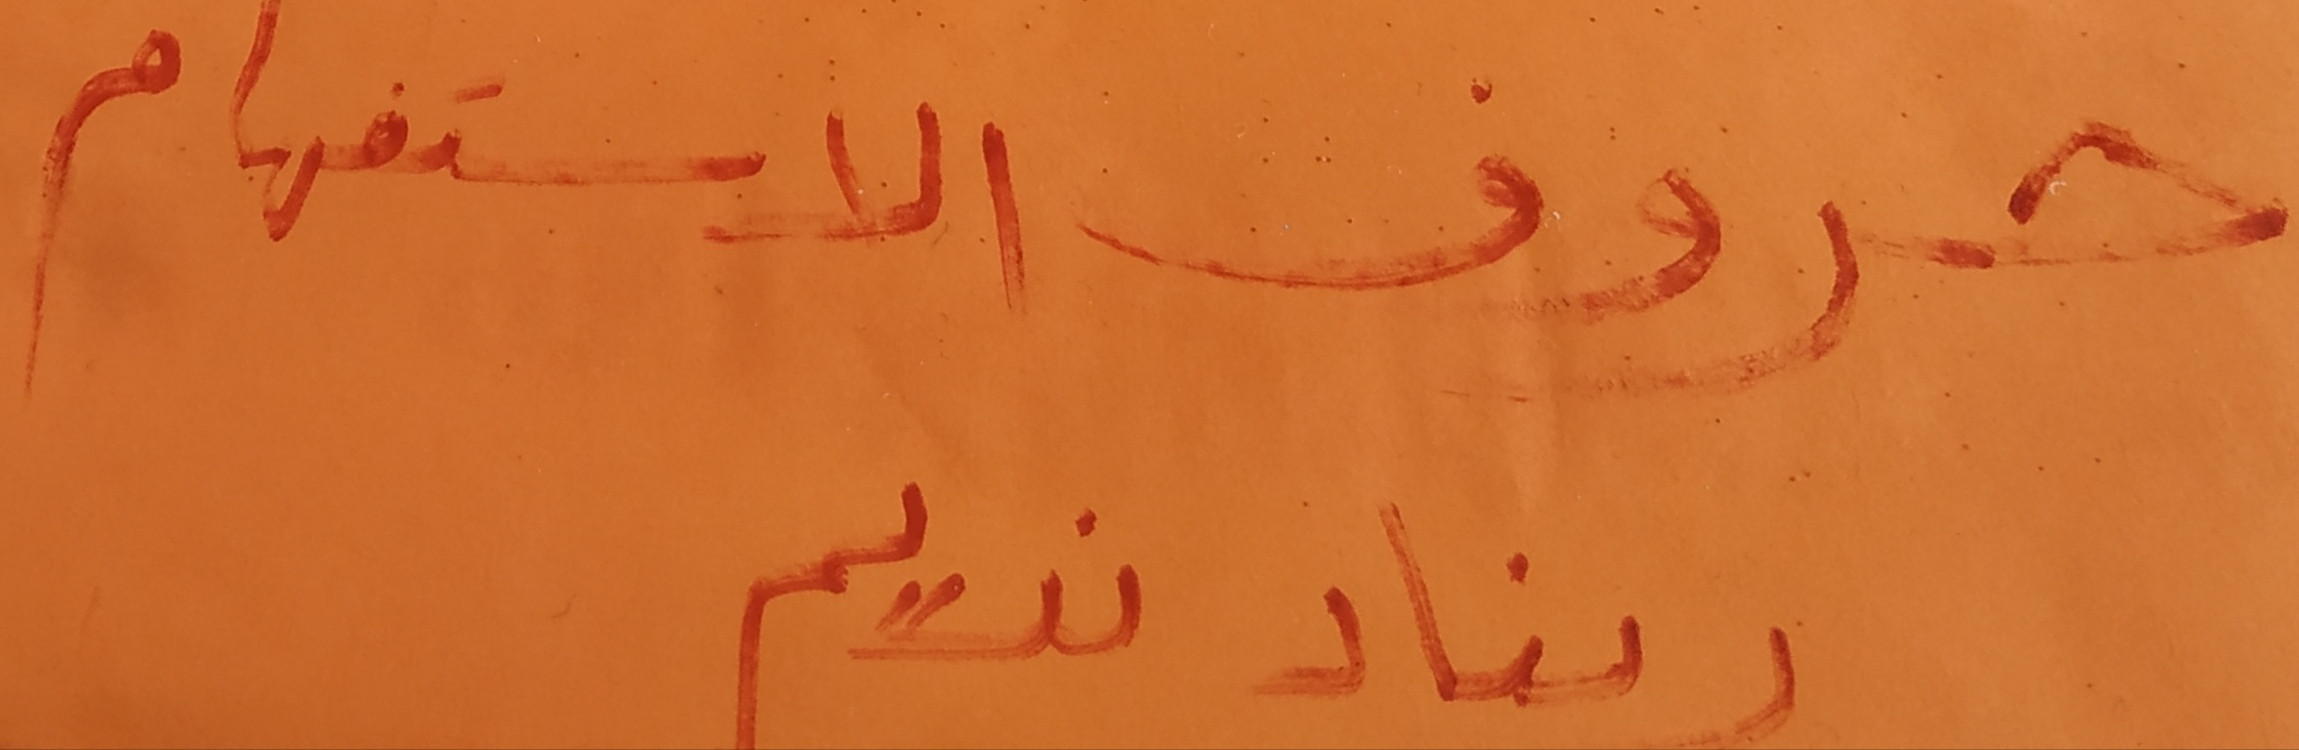 حروف الاستفهام
ريناد نديم